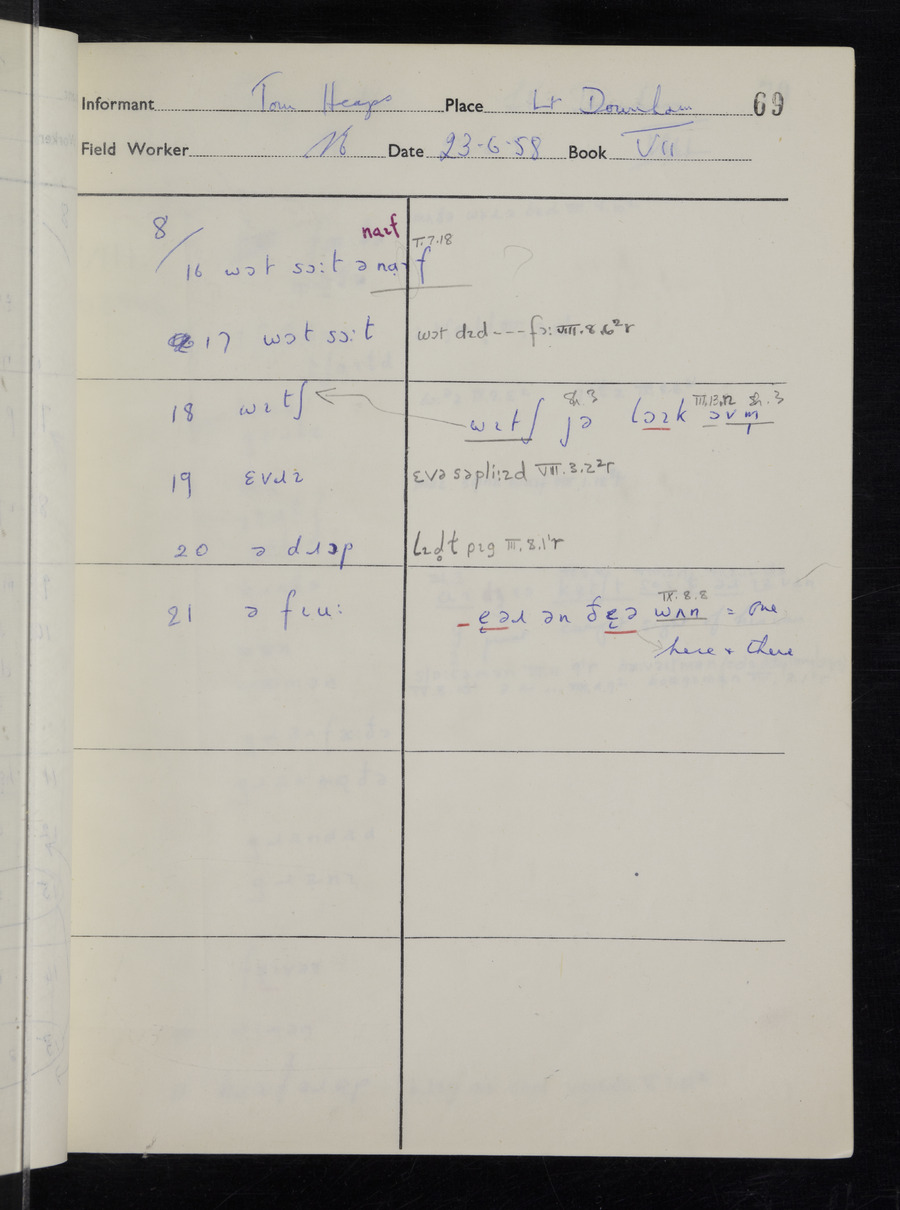 Informant Tom Heaps Place Lt Downham 69
Field Worker Date 23-6-58 Book VII
8/
naɪf
I.7.18
16 wɔt sɔːt ə naɪf
17 wɔt sɔːt wɔt dɪd---fɔː VIII.8.6²r
18 wɪtʃ wɪtʃ jə lɔɪk əv m̩
Sh. 3 III.13.12 Sh. 3
19 ɛvɹɪ ɛvə səpliːɪd VIII.3.2²r
20 ə dɹɔp lɪd̥t pɪg III.8.1'r
21 ə fɪuː ɛ̞əɹ ən ðɛ̞ə wʌn = one
IX.8.8
here + there